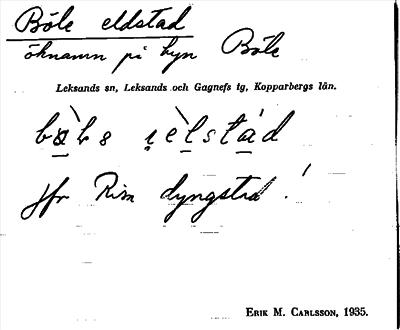 Böle eldstad
öknamn på byn Böle
Leksands sn, Leksands och Gagnefs tg, Kopparbergs län.
jfr Rim dyngstad !
ERIK M. CARLSSON, 1935.